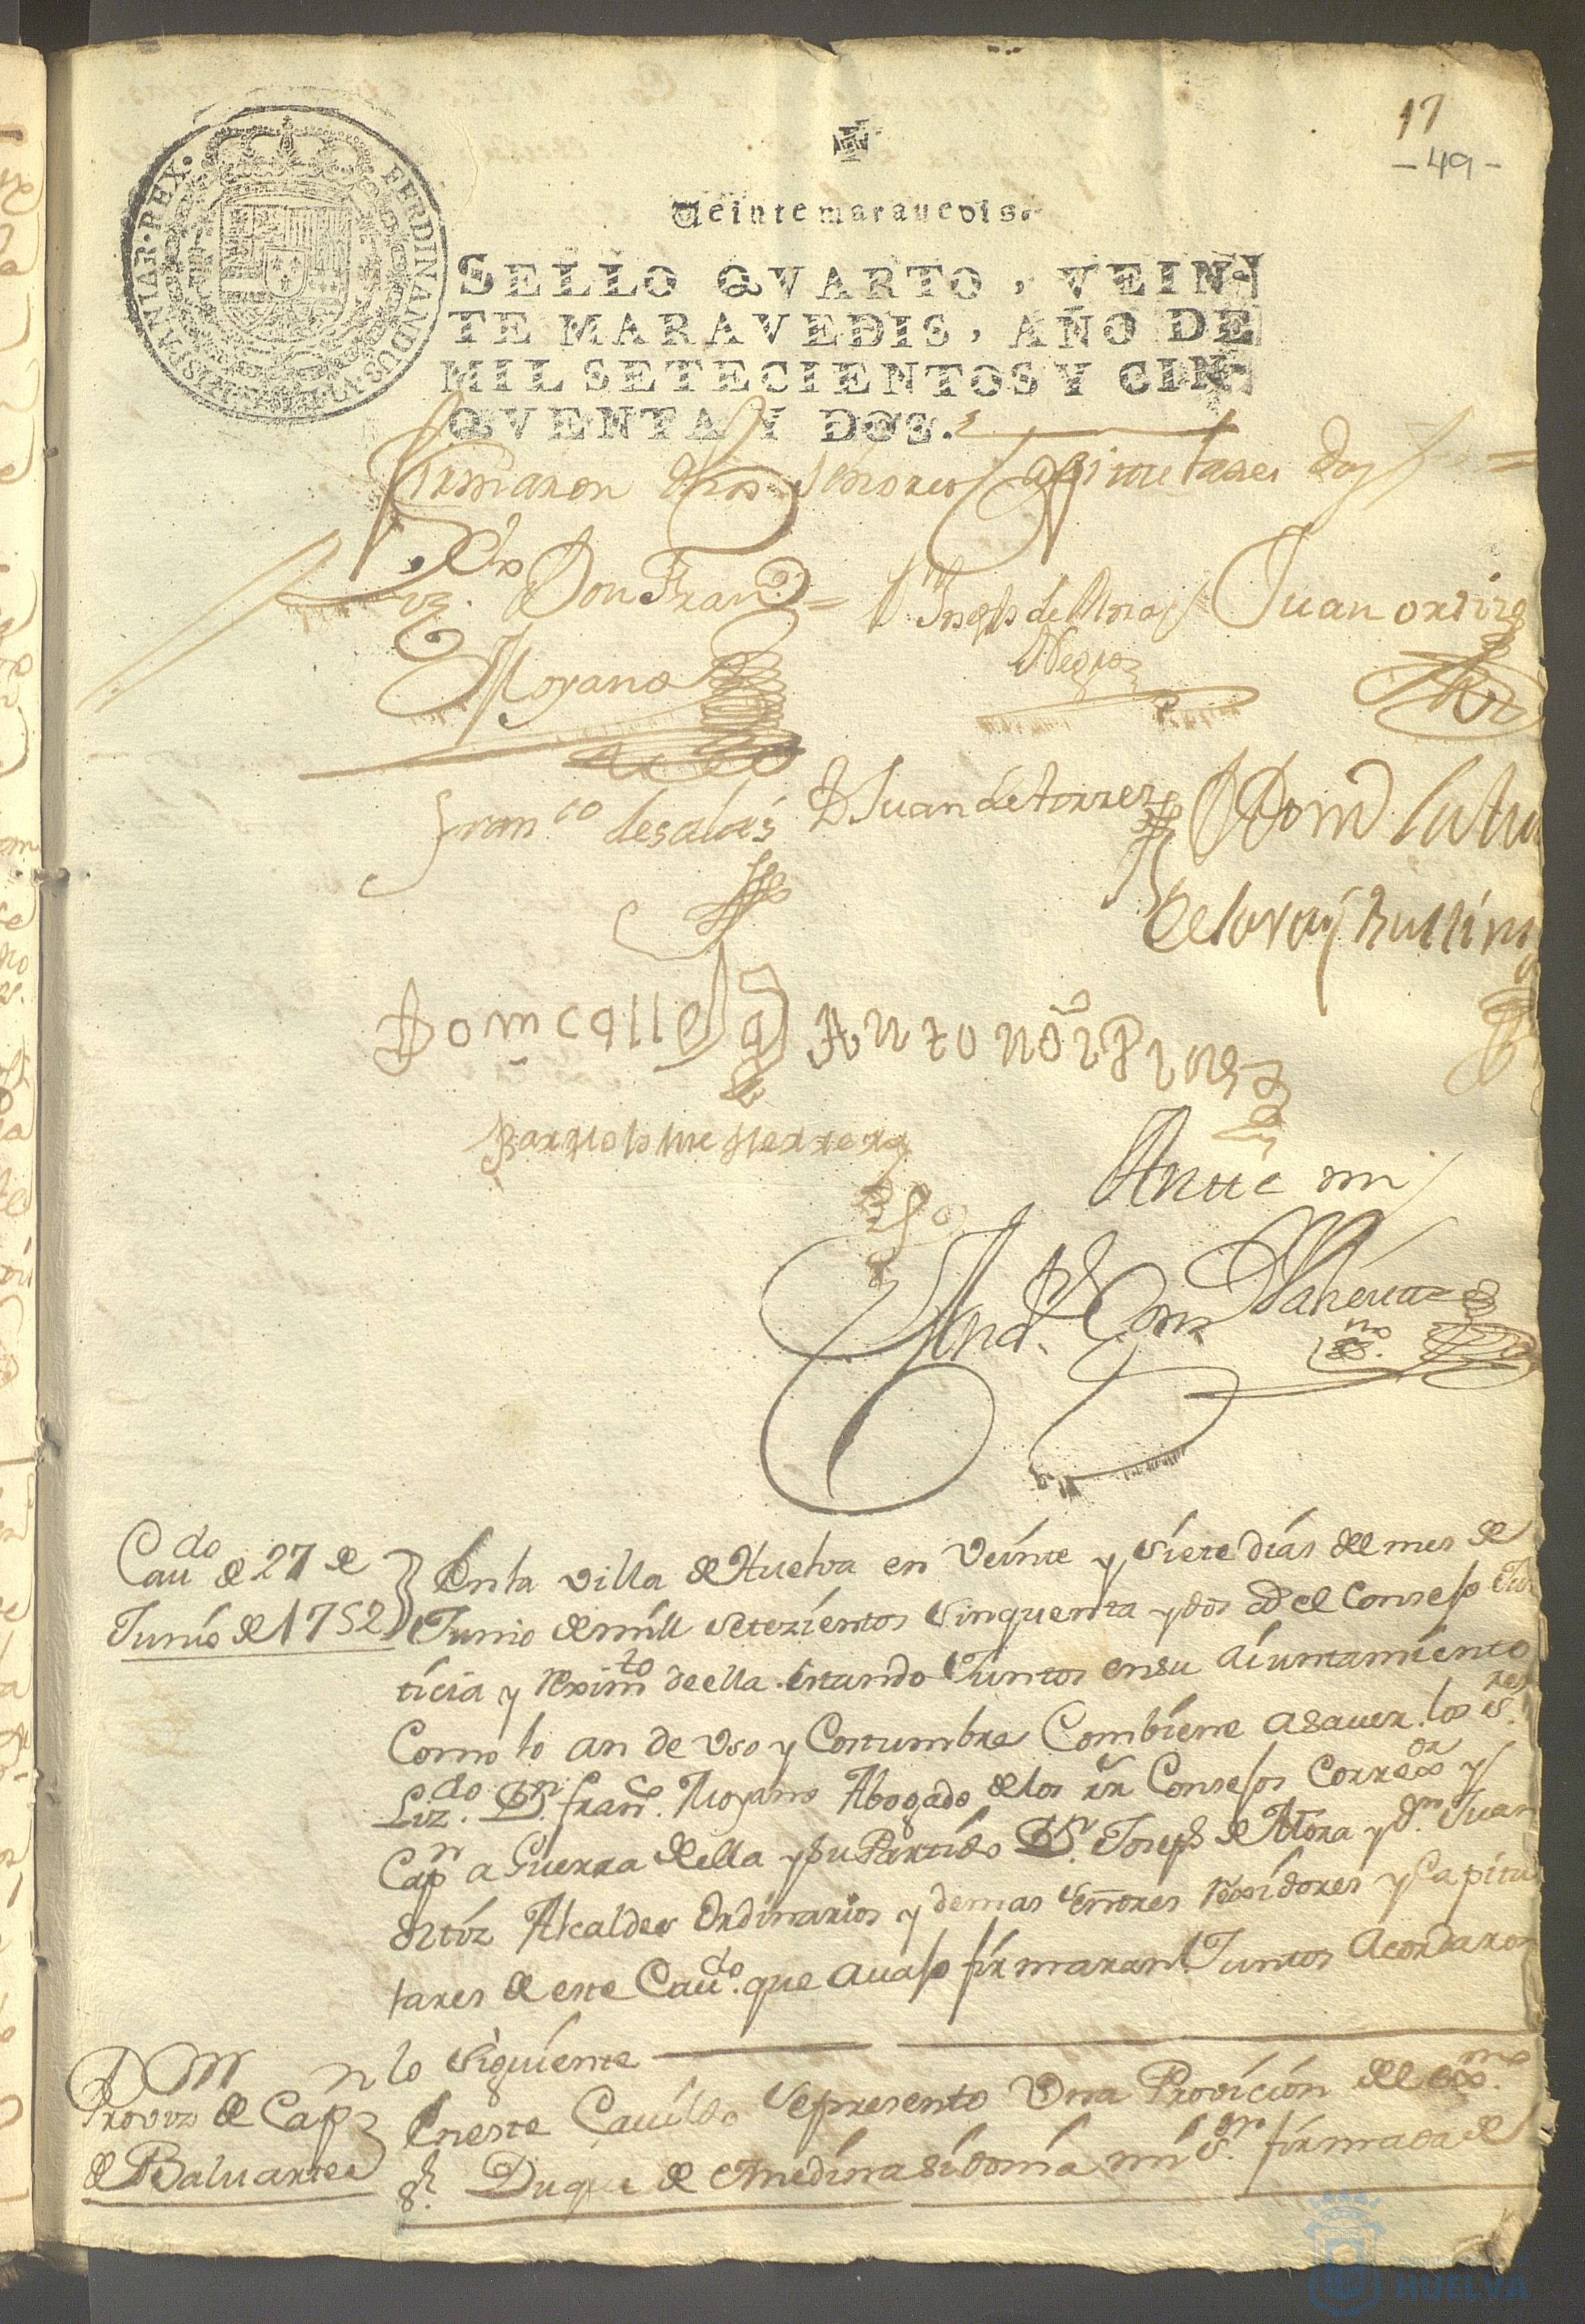 17
- 49 -
HISPANIAR·REX· FERDINANDUS·VI·D·G·
Veinte maravedis.
SELLO QVARTO, VEIN-
TE MARAVEDIS, AÑO DE
MIL SETECIENTOS Y CIN-
QVENTA Y DOS.
Firmaron dhos Señores Capitulares Doy fe =
Lizdo Don Franco = Joseph de Mora Juan ortiz
Moyano Negro
Franco de salas D Juan de torres
Anttonio
Bartolome Herrera
Antte mi
Caudo de 27 de } En la villa de Huelva en Veinte y Siete dias del mes de
Junio de 1752 } Junio de mill Setezientos Sinquenta y dos as el Consejo Jus
ticia y reximto de ella estando Juntos en su aiuntamiento
Como lo an de Uso y Costumbre Combiene a sauer los Sres
Lizdo Dn Franco Moyano Abogado de los rs Consejos Corregor y
Capn a Guerra della y su Partido Dn Joseph de Mora y dn Juan
Ortiz Alcaldes Ordinarios y demas Señores rexidores y Capitu
lares de este Caudo que auajo firmaran Juntos acordaron
lo Siguiente
Provon de Capn En este Cauildo Se presento Una Provicion del exmo
de Baluartes Sr Duque de Medina Sidonia mi Sr firmada de
HUELVA